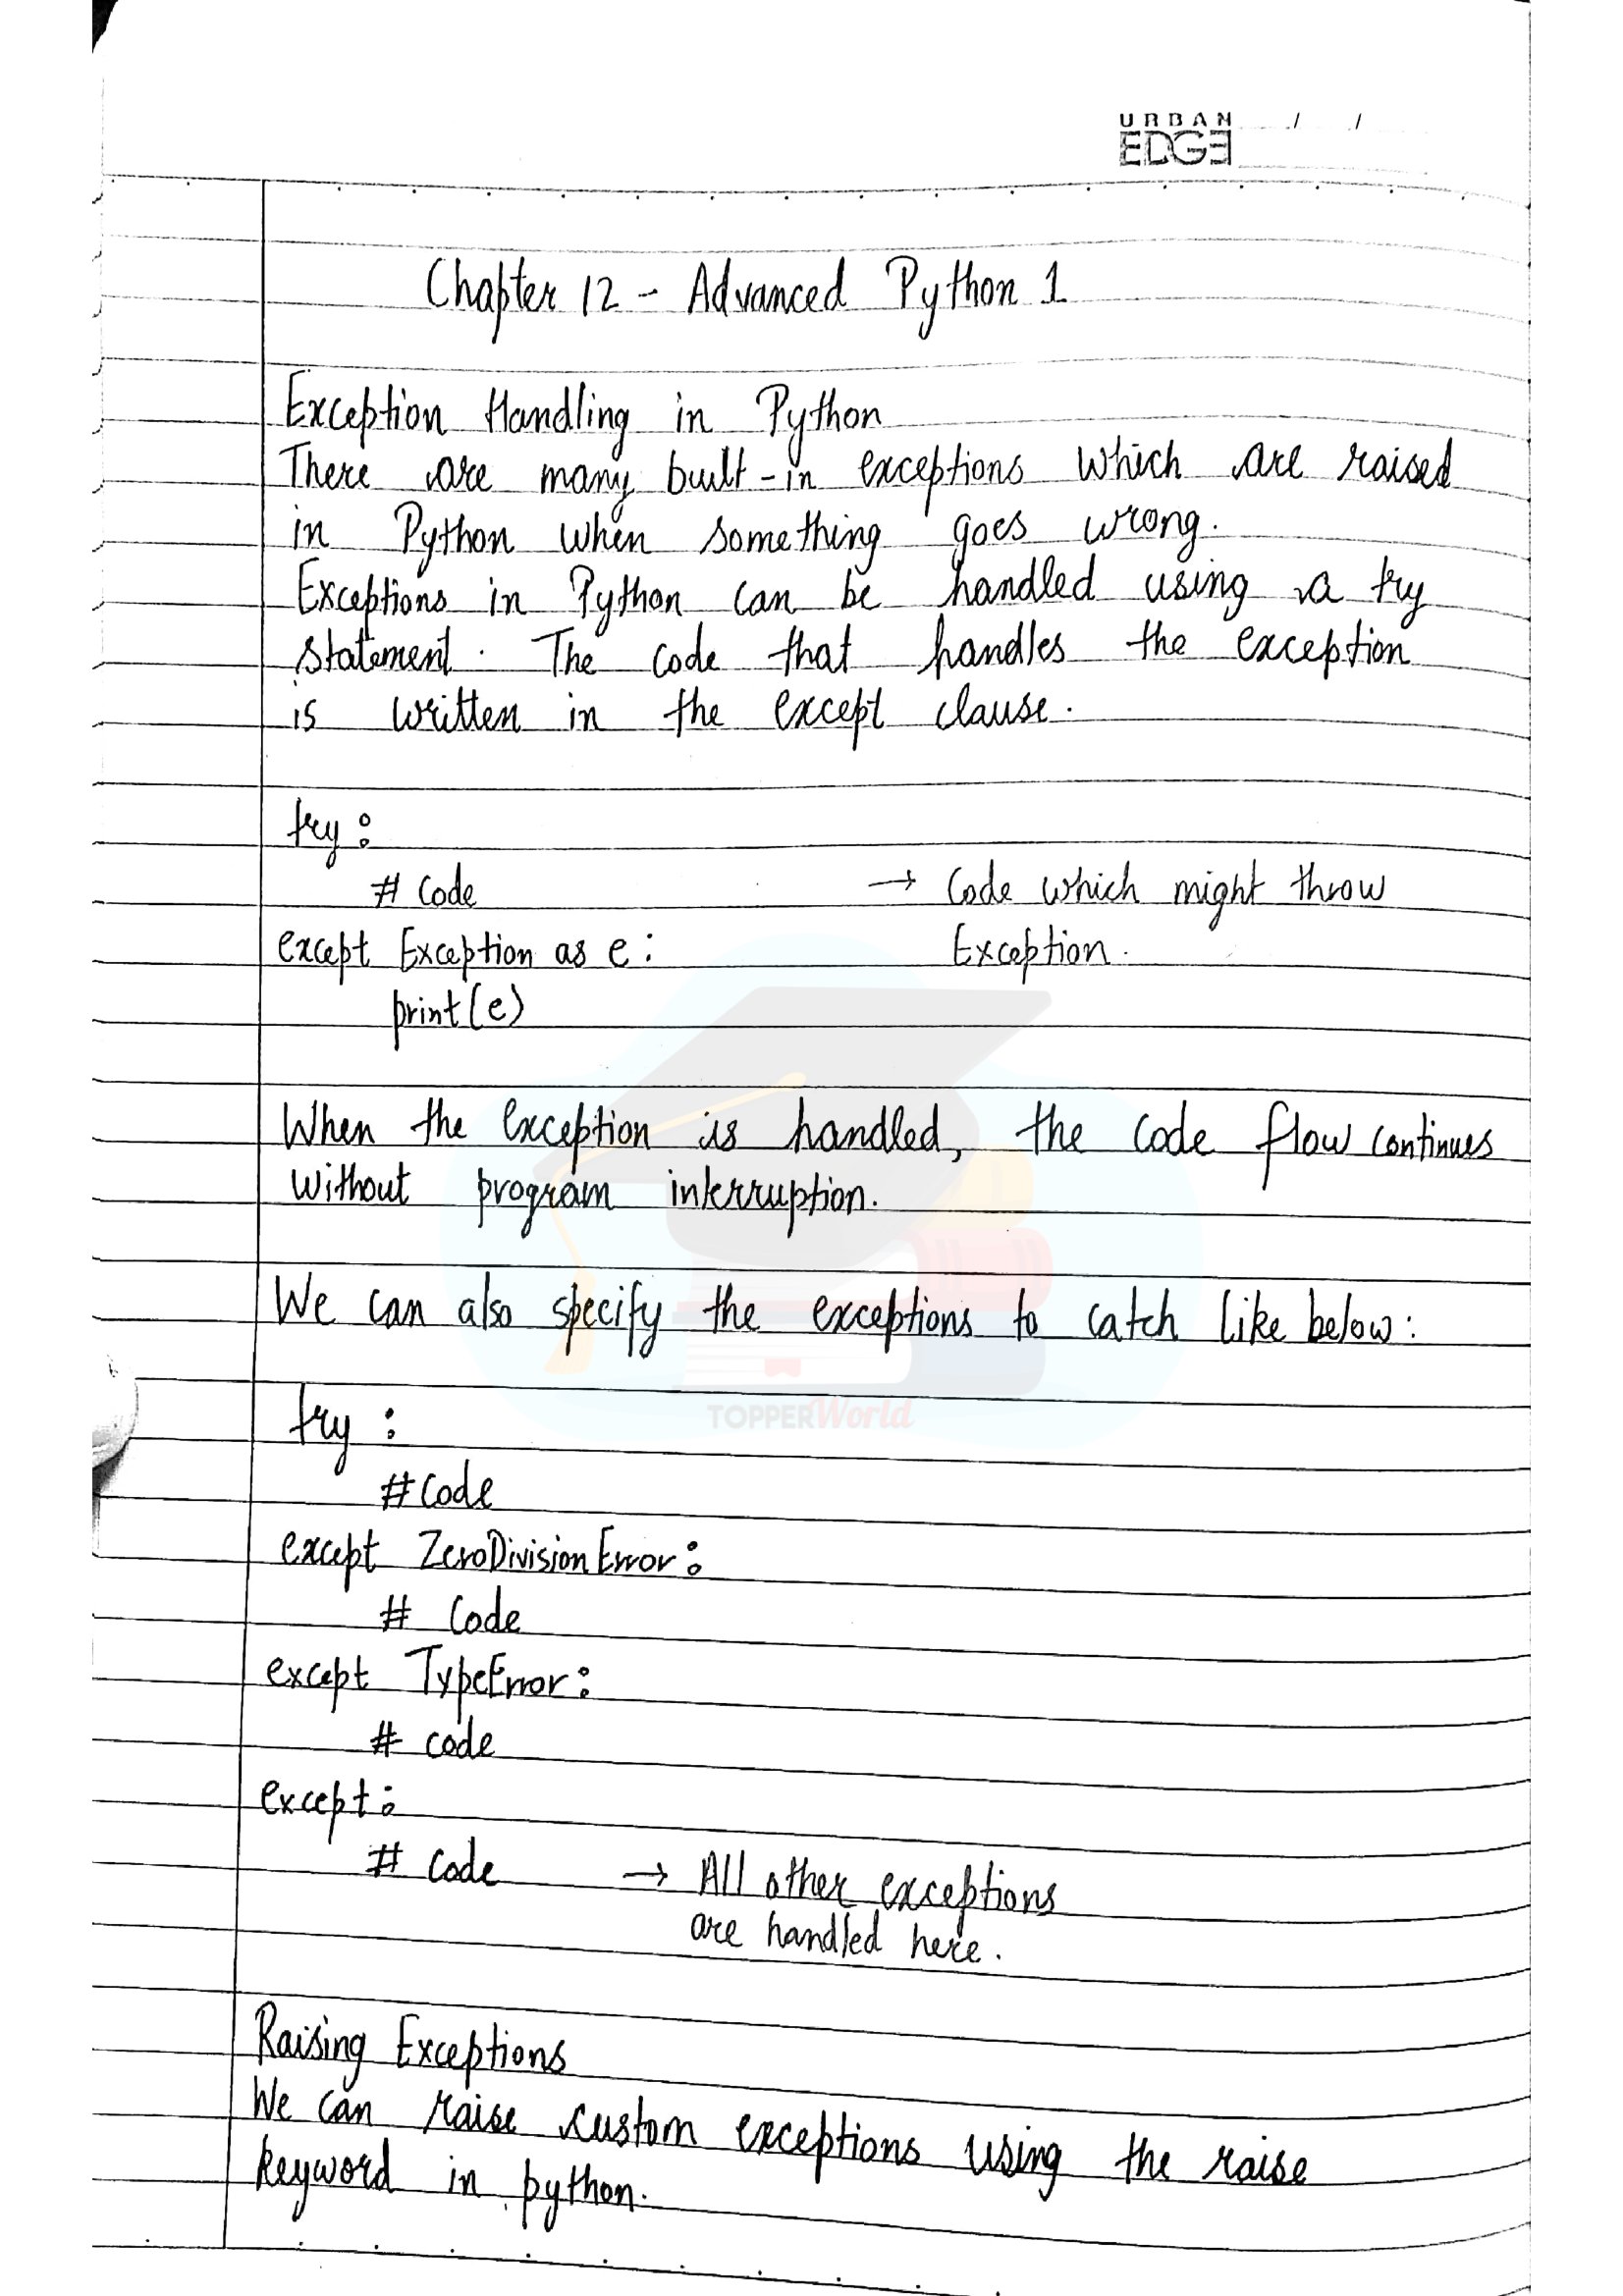 URBAN / /
EDGE
Chapter 12 - Advanced Python 1
Exception Handling in Python
There are many built-in exceptions which are raised
in Python when something goes wrong.
Exceptions in Python can be handled using a try
statement. The code that handles the exception
is written in the except clause.
try:
# Code → Code which might throw
except Exception as e: Exception.
print(e)
When the exception is handled, the code flow continues
without program interruption.
We can also specify the exceptions to catch like below:
TOPPERWorld
try :
#Code
except ZeroDivisionError:
# Code
except TypeError:
# code
except:
# Code → All other exceptions
are handled here.
Raising Exceptions
We can raise custom exceptions using the raise
keyword in python.